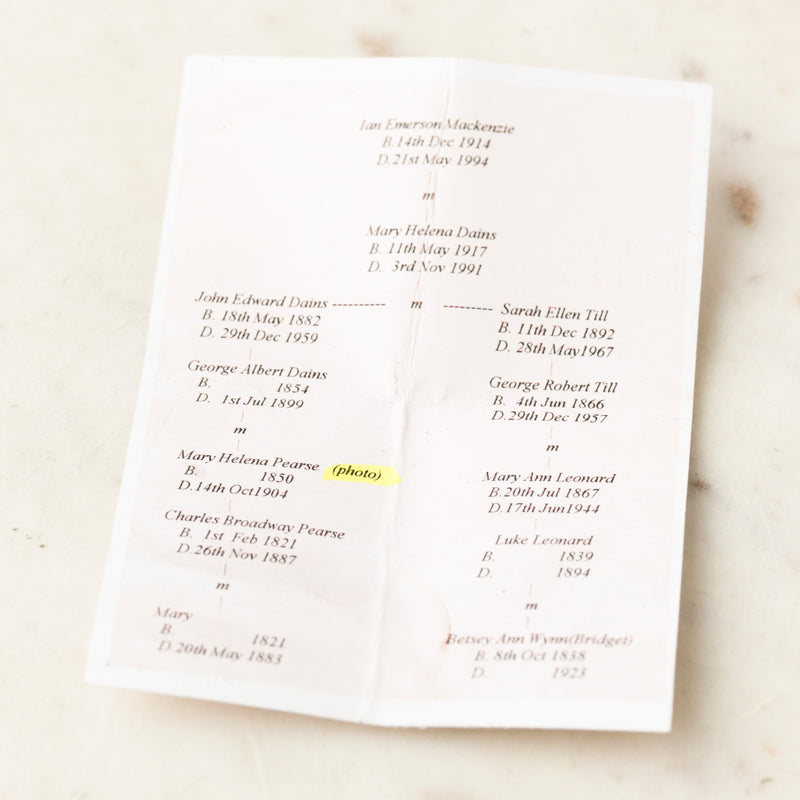 Ian Emerson Mackenzie
B.14th Dec 1914
D.21st May 1994
m
Mary Helena Dains
B. 11th May 1917
D. 3rd Nov 1991
John Edward Dains ---------- m ---------- Sarah Ellen Till
B. 18th May 1882
D. 29th Dec 1959
B. 11th Dec 1892
D. 28th May1967
George Albert Dains
B. 1854
D. 1st Jul 1899
m
Mary Helena Pearse (photo)
B. 1850
D.14th Oct1904
Charles Broadway Pearse
B. 1st Feb 1821
D.26th Nov 1887
m
Mary
B. 1821
D.20th May 1883
George Robert Till
B. 4th Jun 1866
D.29th Dec 1957
m
Mary Ann Leonard
B.20th Jul 1867
D.17th Jun1944
Luke Leonard
B. 1839
D. 1894
m
Betsey Ann Wynn(Bridget)
B. 8th Oct 1838
D. 1923